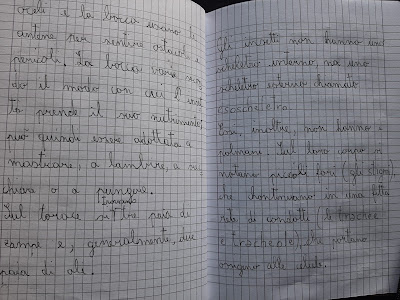 ocelli e la bocca usano le
antenne per sentire ostacoli e
pericoli. La bocca varia secon
do il modo con cui l'inset
to prende il suo nutrimento,
può quindi essere adottata a
masticare, a lambire, a suc
chiare o a pungere.
Sul torace si impiantano tre paia di
zampe e, generalmente, due
paia di ali.
Gli insetti non hanno uno
scheletro interno, ma uno
scheletro esterno chiamato
esoscheletro.
Essi, inoltre, non hanno i
polmoni. Sul loro corpo si
notano piccoli fori (gli stigmi),
che continuano in una fitta
rete di condotti (le trachee
e tracheole), che portano
ossigeno alle cellule.